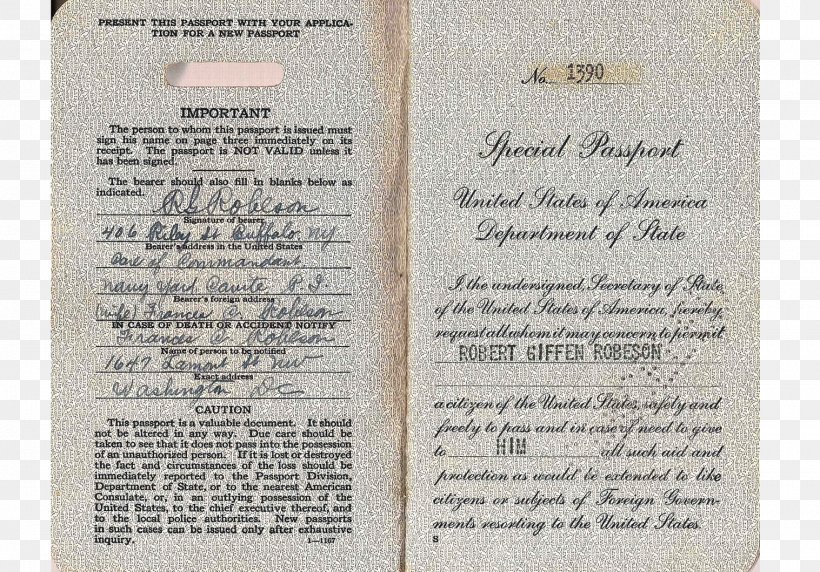 PRESENT THIS PASSPORT WITH YOUR APPLICA-
TION FOR A NEW PASSPORT
IMPORTANT
The person to whom this passport is issued must
sign his name on page three immediately on its
receipt. The passport is NOT VALID unless it
has been signed.
The bearer should also fill in blanks below as
indicated.
RG Robeson
Signature of bearer
406 Riley St Buffalo, NY
Bearer's address in the United States
Care of Commandant
Navy Yard Cavite P.I.
Bearer's foreign address
(wife) Frances C. Robeson
IN CASE OF DEATH OR ACCIDENT NOTIFY
Frances C Robeson
Name of person to be notified
1647 Lamont St NW
Exact address
Washington DC
CAUTION
This passport is a valuable document. It should
not be altered in any way. Due care should be
taken to see that it does not pass into the possession
of an unauthorized person. If it is lost or destroyed
the fact and circumstances of the loss should be
immediately reported to the Passport Division,
Department of State, or to the nearest American
Consulate, or, in an outlying possession of the
United States, to the chief executive thereof, and
to the local police authorities. New passports
in such cases can be issued only after exhaustive
inquiry. 1—1167
No. 1390
Special Passport
United States of America
Department of State
I, the undersigned, Secretary of State
of the United States of America, hereby
request all whom it may concern to permit
ROBERT GIFFEN ROBESON
a citizen of the United States, safely and
freely to pass and in case of need to give
to HIM all such aid and
protection as would be extended to like
citizens or subjects of Foreign Govern-
ments resorting to the United States.
S